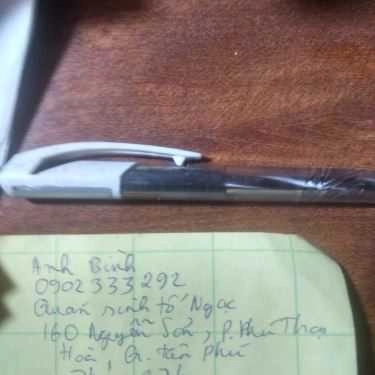 Anh Bình
0902 333 292
Quán sinh tố Ngọc
160 Nguyễn Sơn, P. Phú Thọ
Hoà, Q. Tân Phú